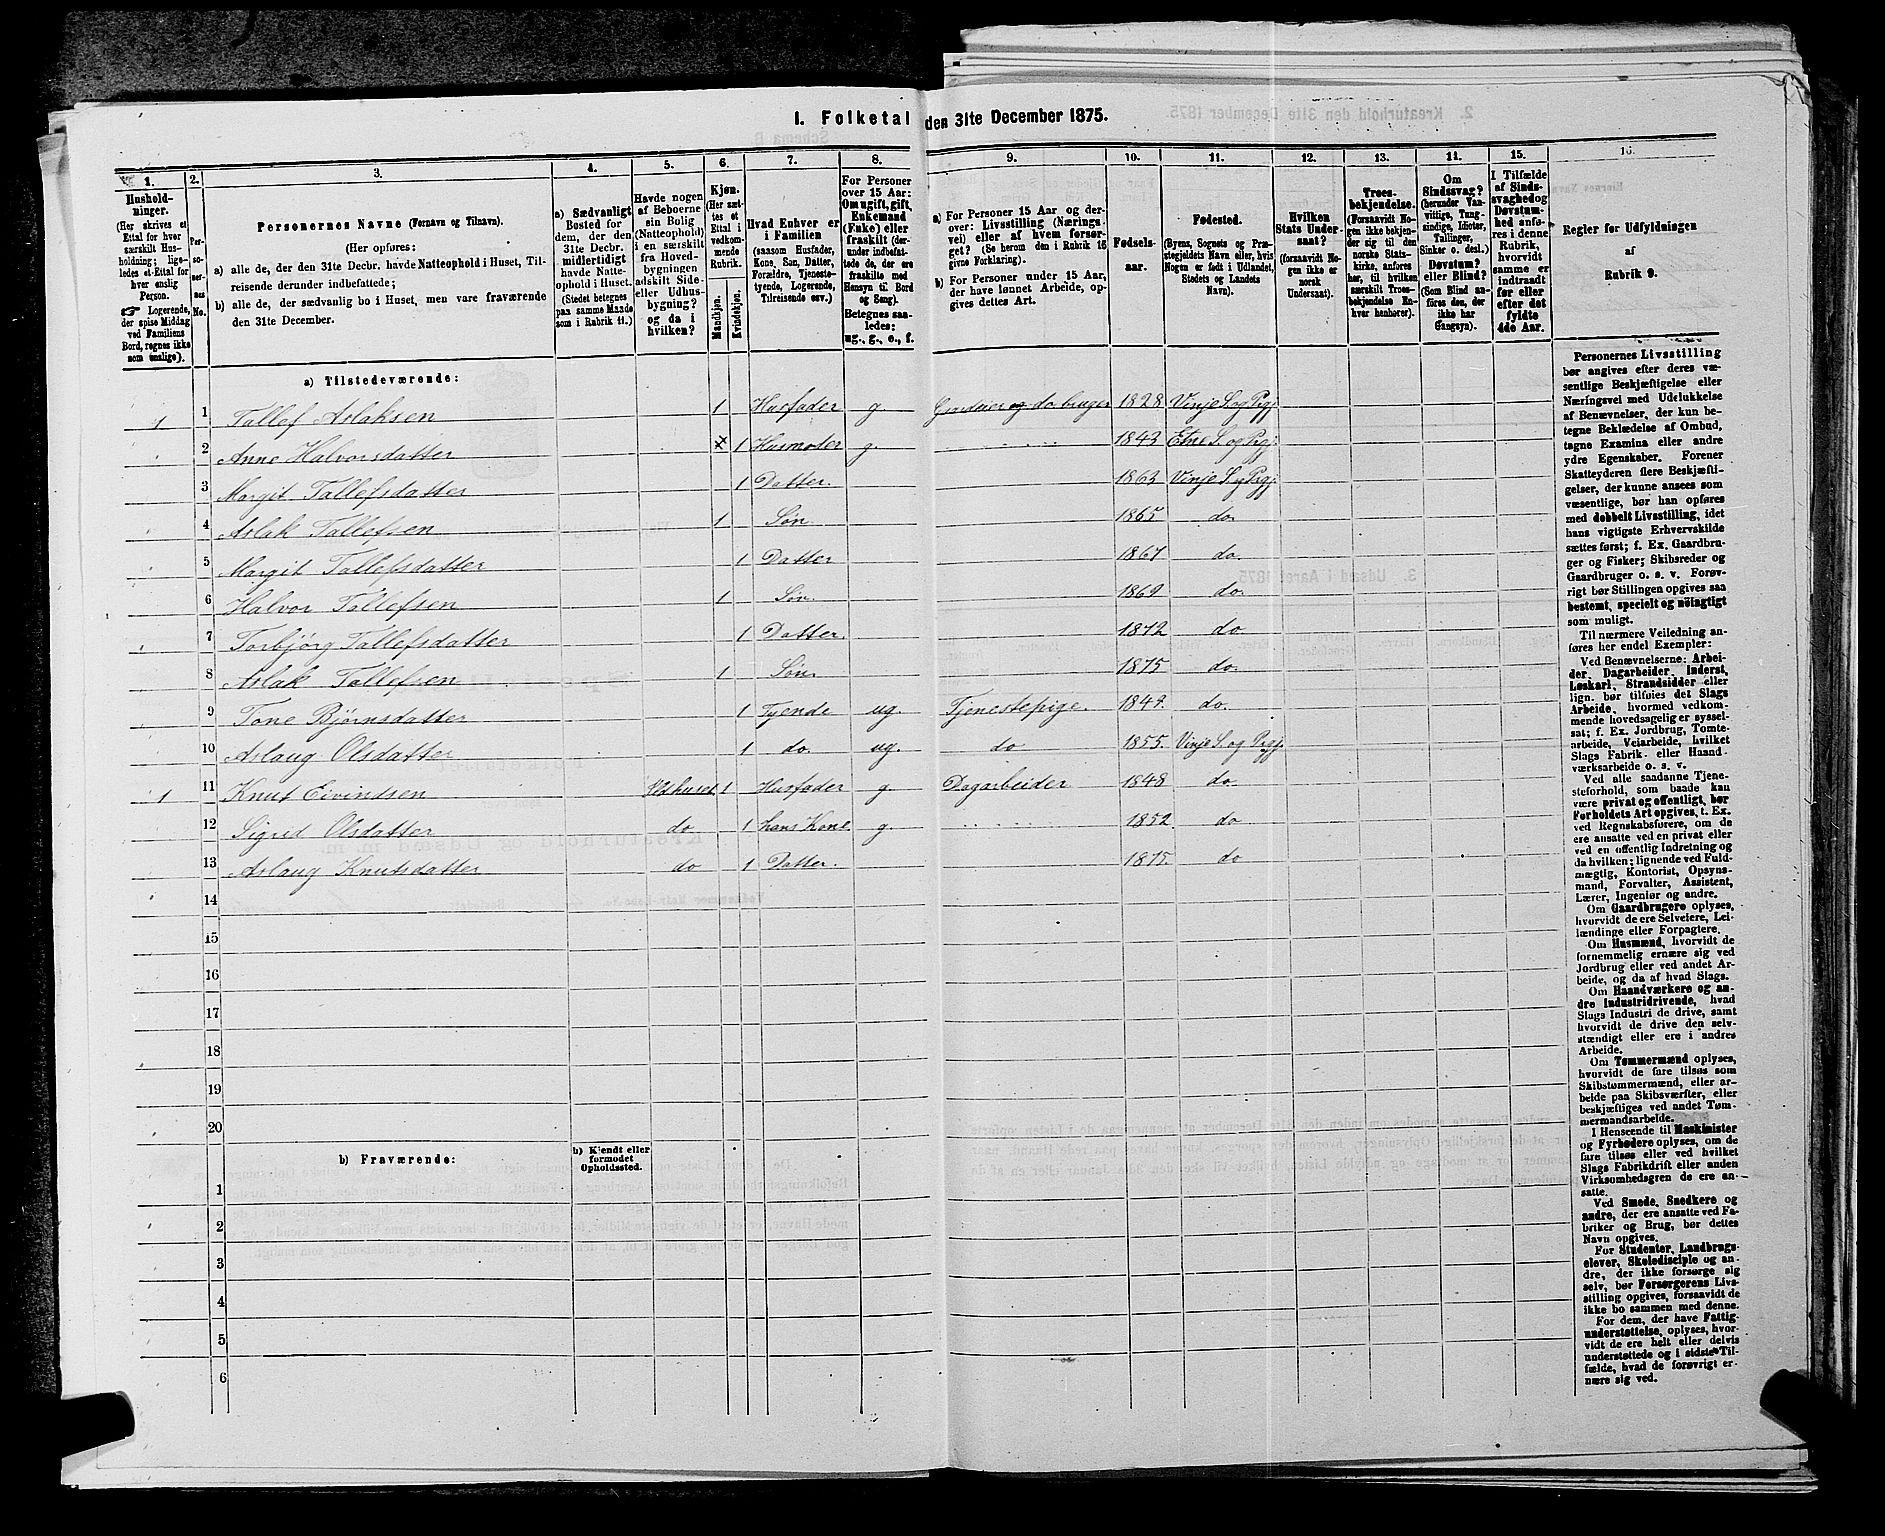 1. Folketal den 31te December 1875.
1. 2. 3. 4. 5. 6. 7. 8. 9. 10. 11. 12. 13. 14. 15. 16.
Husholdninger.
(Her skrives et
Ettal for hver
særskilt Husholdning;
ligeledes et Ettal for
hver enslig
Person.
☛ Logerende,
der spise Middag
ved Familiens
Bord, regnes ikke
som enslige).
Personernes No.
Personernes Navne (Fornavn og Tilnavn).
(Her opføres:
a) alle de, der den 31te Decbr. havde Natteophold i Huset, Tilreisende derunder indbefattede;
b) alle de, der sædvanlig bo i Huset, men vare fraværende
den 31te December.
a) Sædvanligt
Bosted for
dem, der den
31te Decbr.
midlertidigt
havde Natteophold i Huset.
(Stedet betegnes
paa samme Maade
som i Rubrik 11.)
Havde nogen
af Beboerne
sin Bolig
(Natteophold)
i en særskilt
fra Hovedbygningen
adskilt Side- eller Udhusbygning?
og da i
hvilken?
Kjøn.
(Her sættes et
Ettal i vedkommende
Rubrik.)
Mandkjøn. Kvindekjøn.
Hvad Enhver er
i Familien
(saasom Husfader,
Kone, Søn, Datter,
Forældre, Tjenestetyende, Logerende,
Tilreisende osv.)
For Personer
over 15 Aar:
Om ugift, gift,
Enkemand
(Enke) eller
fraskilt (derunder indbefattede de, der ere
fraskilte med
Hensyn til Bord
og Seng).
Betegnes saaledes:
ug., g., e., f.
a) For Personer 15 Aar og derover: Livsstilling (Næringsvei) eller af hvem forsørget? (Se herom den i Rubrik 16
givne Forklaring).
b) For Personer under 15 Aar,
der have lønnet Arbeide, opgives dettes Art.
Fødselsaar.
Fødested.
(Byens, Sognets og Præstegjeldets Navn eller, hvis
Nogen er født i Udlandet,
Stedets og Landets
Navn).
Hvilken
Stats Undersaat?
(forsaavidt Nogen ikke er
norsk
Undersaat).
Troesbekjendelse.
(Forsaavidt Nogen ikke bekjender sig til den
norske Statskirke, anføres
her, til hvilken
særskilt Troesbekjendelse Enhver henhører).
Om
Sindssvag?
(herunder Vanvittige, Tungsindige, Idioter,
Tullinger,
Sinker o. desl.)
Døvstum?
eller Blind?
(Som Blind anføres den, der
ikke har
Gangsyn).
I Tilfælde
af Sindssvaghed og
Døvstumhed anføres i denne
Rubrik,
hvorvidt
samme er
indtraadt
før eller
efter det
fyldte
4de Aar.
Regler for Udfyldningen
af
Rubrik 9.
a) Tilstedeværende:
1 1 Tallef Aslaksen 1 Husfader g Gardeier og do bruger 1828 Vinje S. og Prgj.
2 Anne Halvorsdatter x 1 Husmoder g 1843 Etne S. og Prgj.
3 Margit Tallefsdatter 1 Datter. 1863 Vinje S. og Prgj.
4 Aslak Tallefsen 1 Søn. 1865 do.
5 Margit Tallefsdatter 1 Datter 1867 do.
6 Halvor Tallefsen 1 Søn. 1869 do.
7 Torbjörg Tallefsdatter 1 Datter. 1872 do
8 Aslak Tallefsen 1 Søn. 1875 do.
9 Tone Bjørnsdatter 1 Tyende ug. Tjenestepige. 1849. do.
10 Aslaug Olsdatter 1 do. ug. do 1855. Vinje S. og Prgj.
1 11 Knut Eivindsen 1 Husfader g Dagarbeider 1848 do
12 Sigrid Olsdatter do 1 hans Kone g. 1852. do
13 Aslaug Knutsdatter do 1 Datter. 1875. do
14
15
16
17
18
19
20
b) Fraværende: b) Kjendt eller
formodet
Opholdssted.
1
2
3
4
5
6
Personernes Livsstilling
bør angives efter deres væsentlige Beskjæftigelse eller
Næringsvei med Udelukkelse
af Benævnelser, der kun betegne Beklædelse af Ombud,
tagne Examina eller andre
ydre Egenskaber. Forener
Skatteyderen flere Beskjæftigelser, der kunne ansees som
væsentlige, bør han opføres
med dobbelt Livsstilling, idet
hans vigtigste Erhvervskilde
sættes først; f. Ex. Gaardbruger og Fisker; Skibsreder og
Gaardbruger o. s. v. Forøvrigt bør Stillingen opgives saa
bestemt, specielt og nøiagtigt
som muligt.
Til nærmere Veiledning anføres her endel Exempler:
Ved Benævnelserne: Arbeider, Dagarbeider, Inderst,
Løskarl, Strandsidder eller
lign. bør tilføies det Slags
Arbeide, hvormed vedkommende hovedsagelig er sysselsat; f. Ex. Jordbrug, Tomtearbeide, Veiarbeide, hvilket
Slags Fabrik- eller Haandværksarbeide o. s. v.
Ved alle saadanne Tjenesteforhold, som baade kan
være privat og offentligt, bør
Forholdets Art opgives, t. Ex.
ved Regnskabsførere, om de
ere ansatte ved en privat eller
ved en offentlig Indretning og
da hvilken; lignende ved Fuldmægtig, Kontorist, Opsynsmand, Forvalter, Assistent,
Lærer, Ingeniør og andre.
Om Gaardbrugere oplyses,
hvorvidt de ere Selveiere, Leilændinge eller Forpagtere.
Om Husmænd, hvorvidt de
fornemmelig ernære sig ved
Jordbrug eller ved andet Arbeide, og da af hvad Slags.
Om Haandværkere og andre Industridrivende, hvad
Slags Industri de drive, samt
hvorvidt de drive den selvstændigt eller ere i andres
Arbeide.
Om Tømmermænd oplyses,
hvorvidt de fare tilsøs som
Skibstømmermænd, eller arbeide paa Skibsværfter, eller
beskjæftiges ved andet Tømmermandsarbeide.
I Henseende til Maskinister
og Fyrbødere oplyses, om de
fare tilsøs eller ved hvilket
Slags Fabrikdrift eller anden
Virksomhedsgren de ere ansatte.
Ved Smede, Snedkere og
andre, der ere ansatte ved Fabriker og Brug, bør dettes
Navn opgives.
For Studenter, Landbrugselever, Skoledisciple og andre, der ikke forsørge sig
selv, bør Forsørgerens Livsstilling opgives, forsaavidt de
ikke bo sammen med denne.
For dem, der have Fattigunderstøttelse, oplyses, hvorvidt de ere helt eller delvis
understøttede og i sidste Tilfælde, hvad de forøvrigt ernære sig ved.